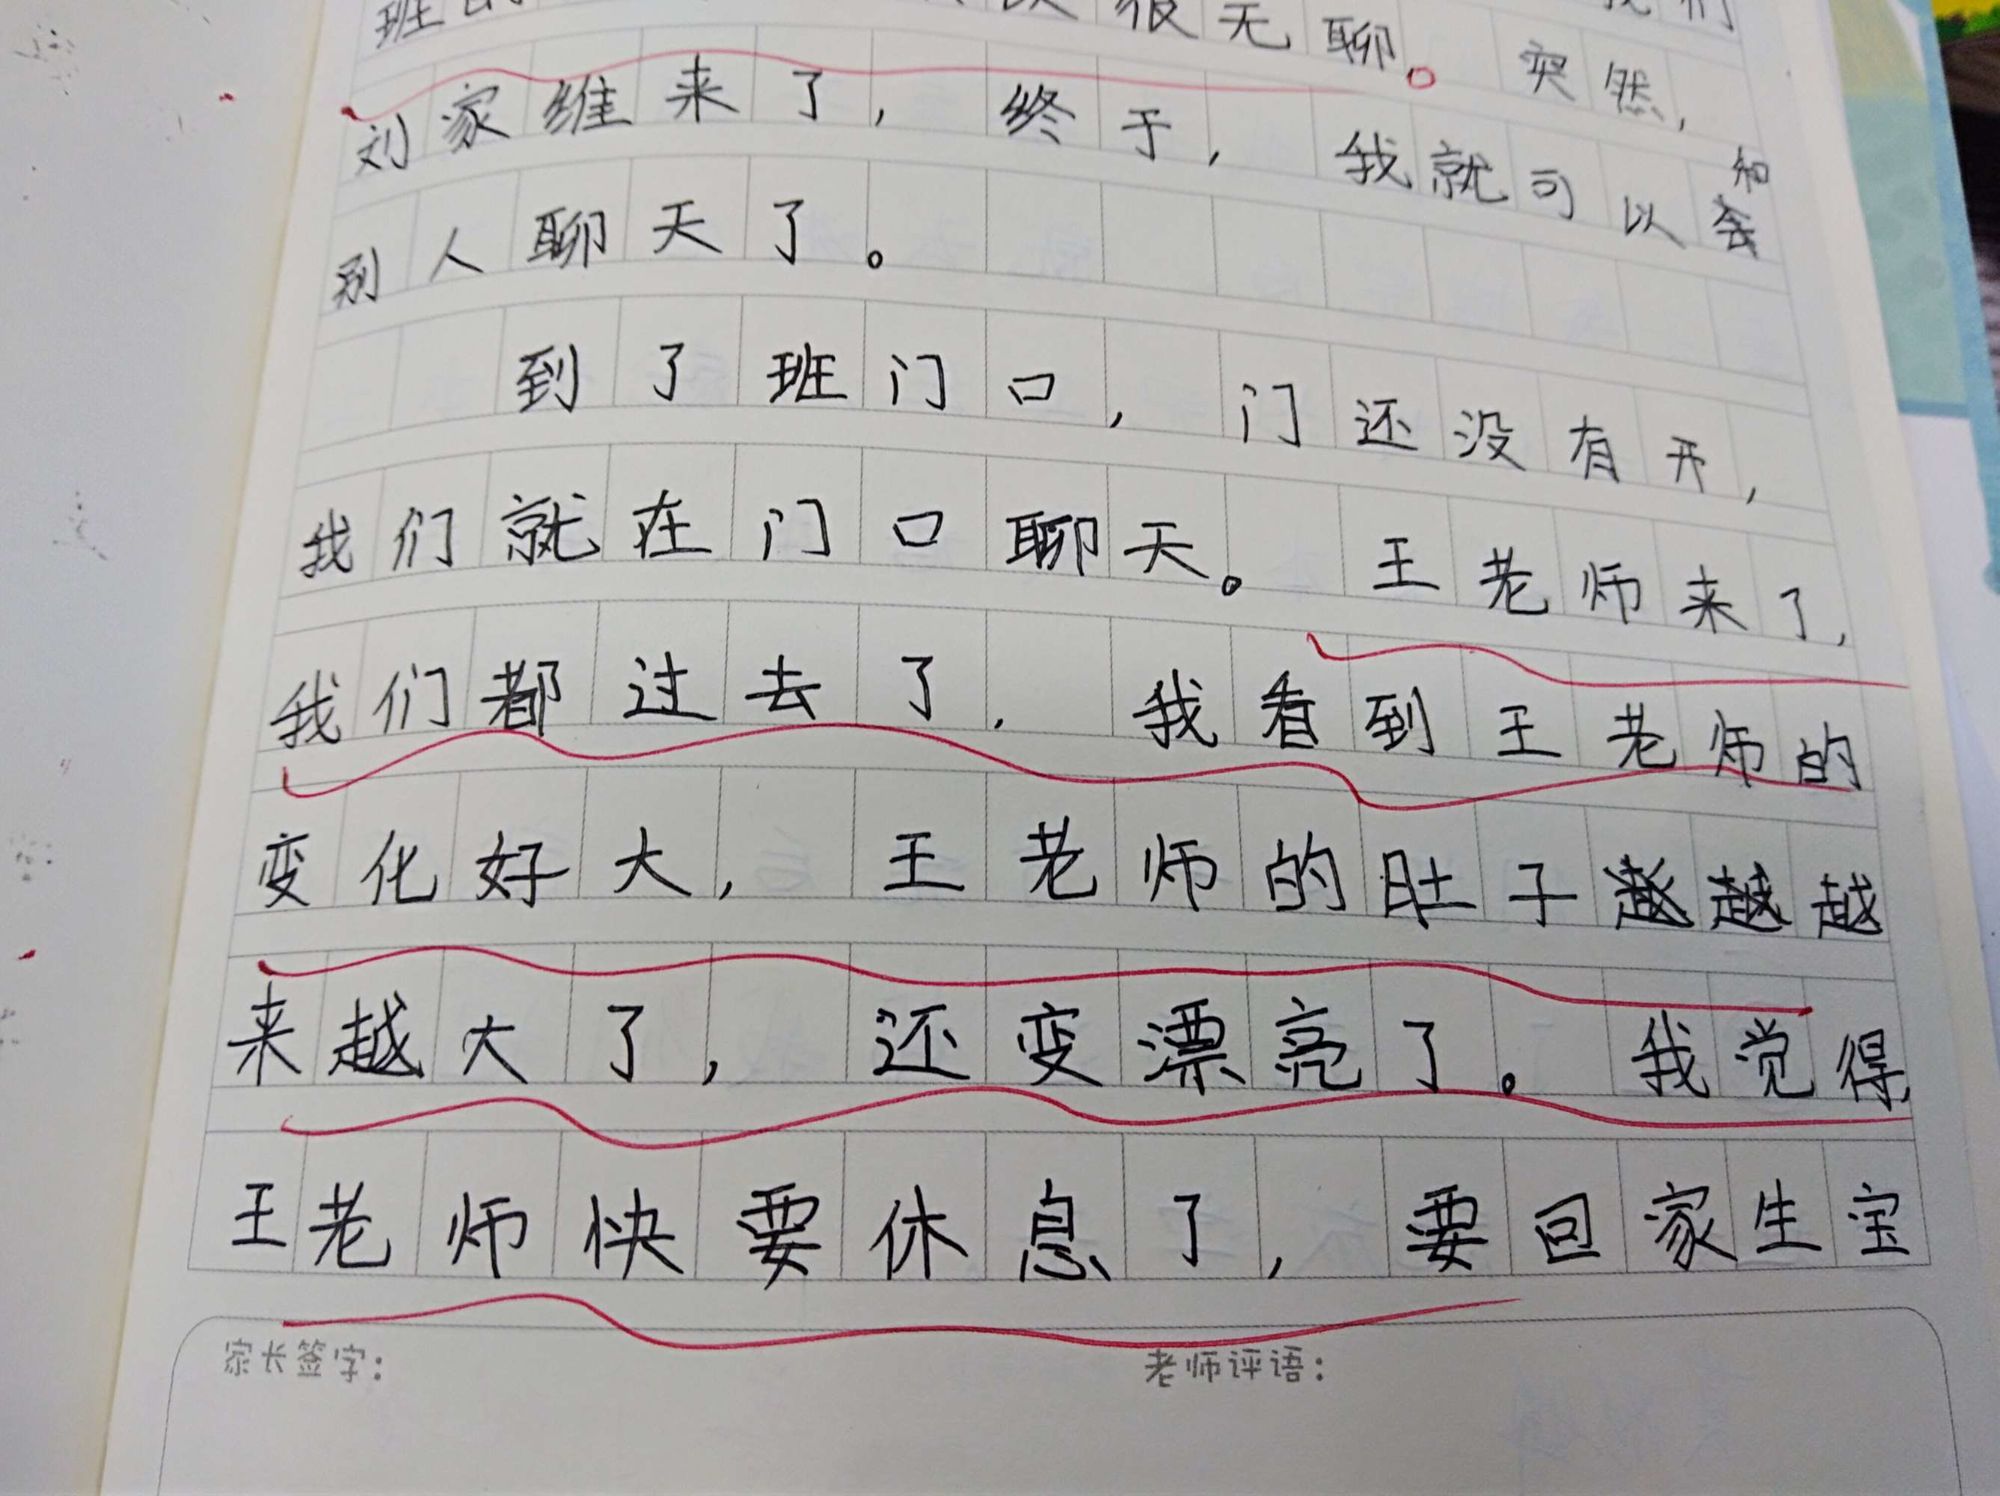 很无聊。突然，
刘家维来了，终于，我就可以和
别人聊天了。
到了班门口，门还没有开，
我们就在门口聊天。王老师来了，
我们都过去了，我看到王老师的
变化好大，王老师的肚子越
来越大了，还变漂亮了。我觉得
王老师快要休息了，要回家生宝
家长签字：
老师评语：